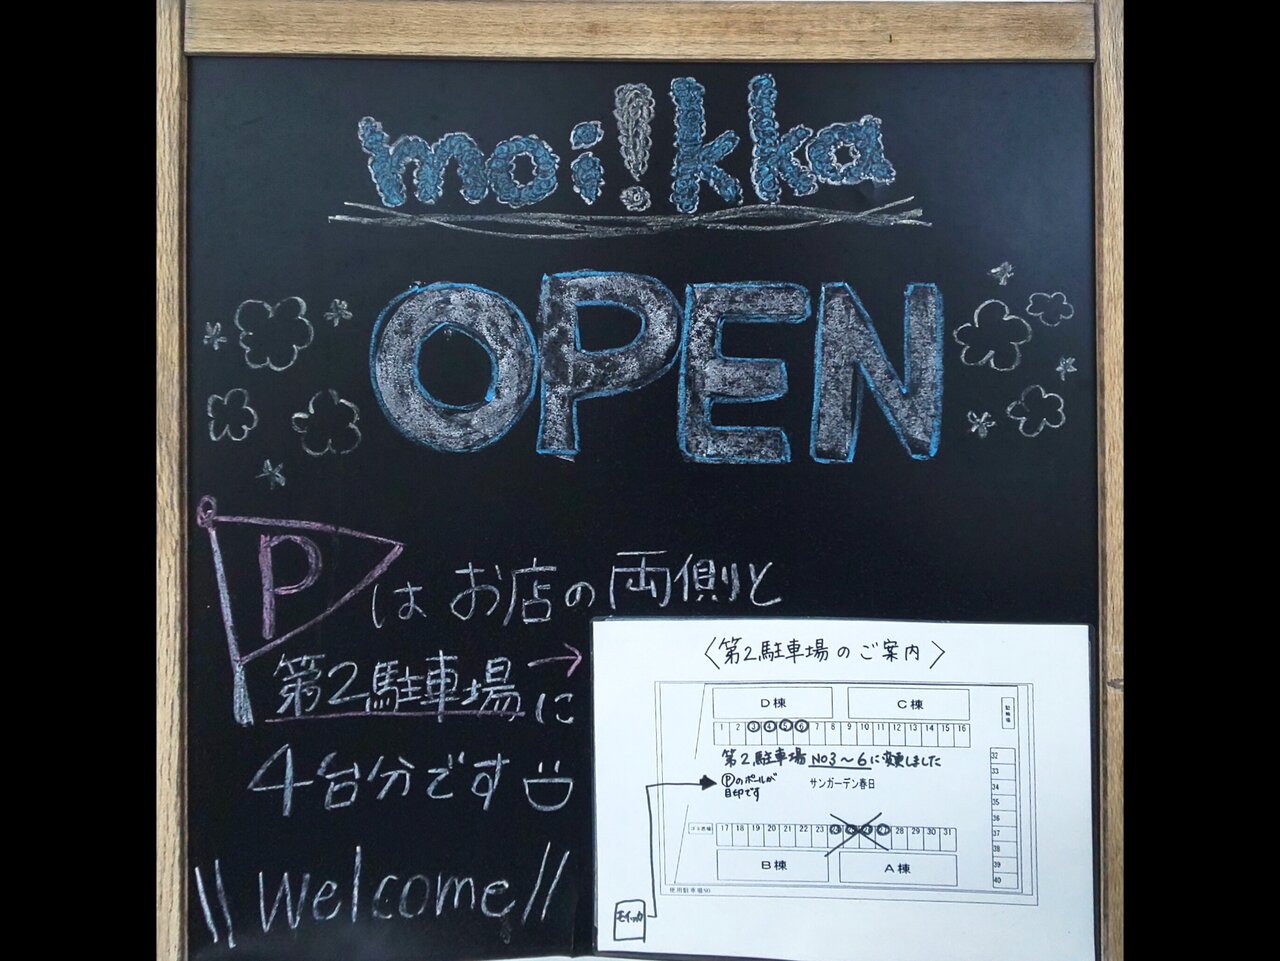 moi!kka
OPEN
Pはお店の両側と
第2駐車場→に
4台分です
\\ Welcome //
〈第2駐車場のご案内〉
D棟 C棟
駐輪場
1 2 3 4 5 6 7 8 9 10 11 12 13 14 15 16
第2駐車場 NO3～6に変更しました
Ⓟのポールが
目印です
サンガーデン春日
32
33
34
35
36
37
38
39
40
ゴミ置場
17 18 19 20 21 22 23 24 25 26 27 28 29 30 31
B棟 A棟
モイッカ